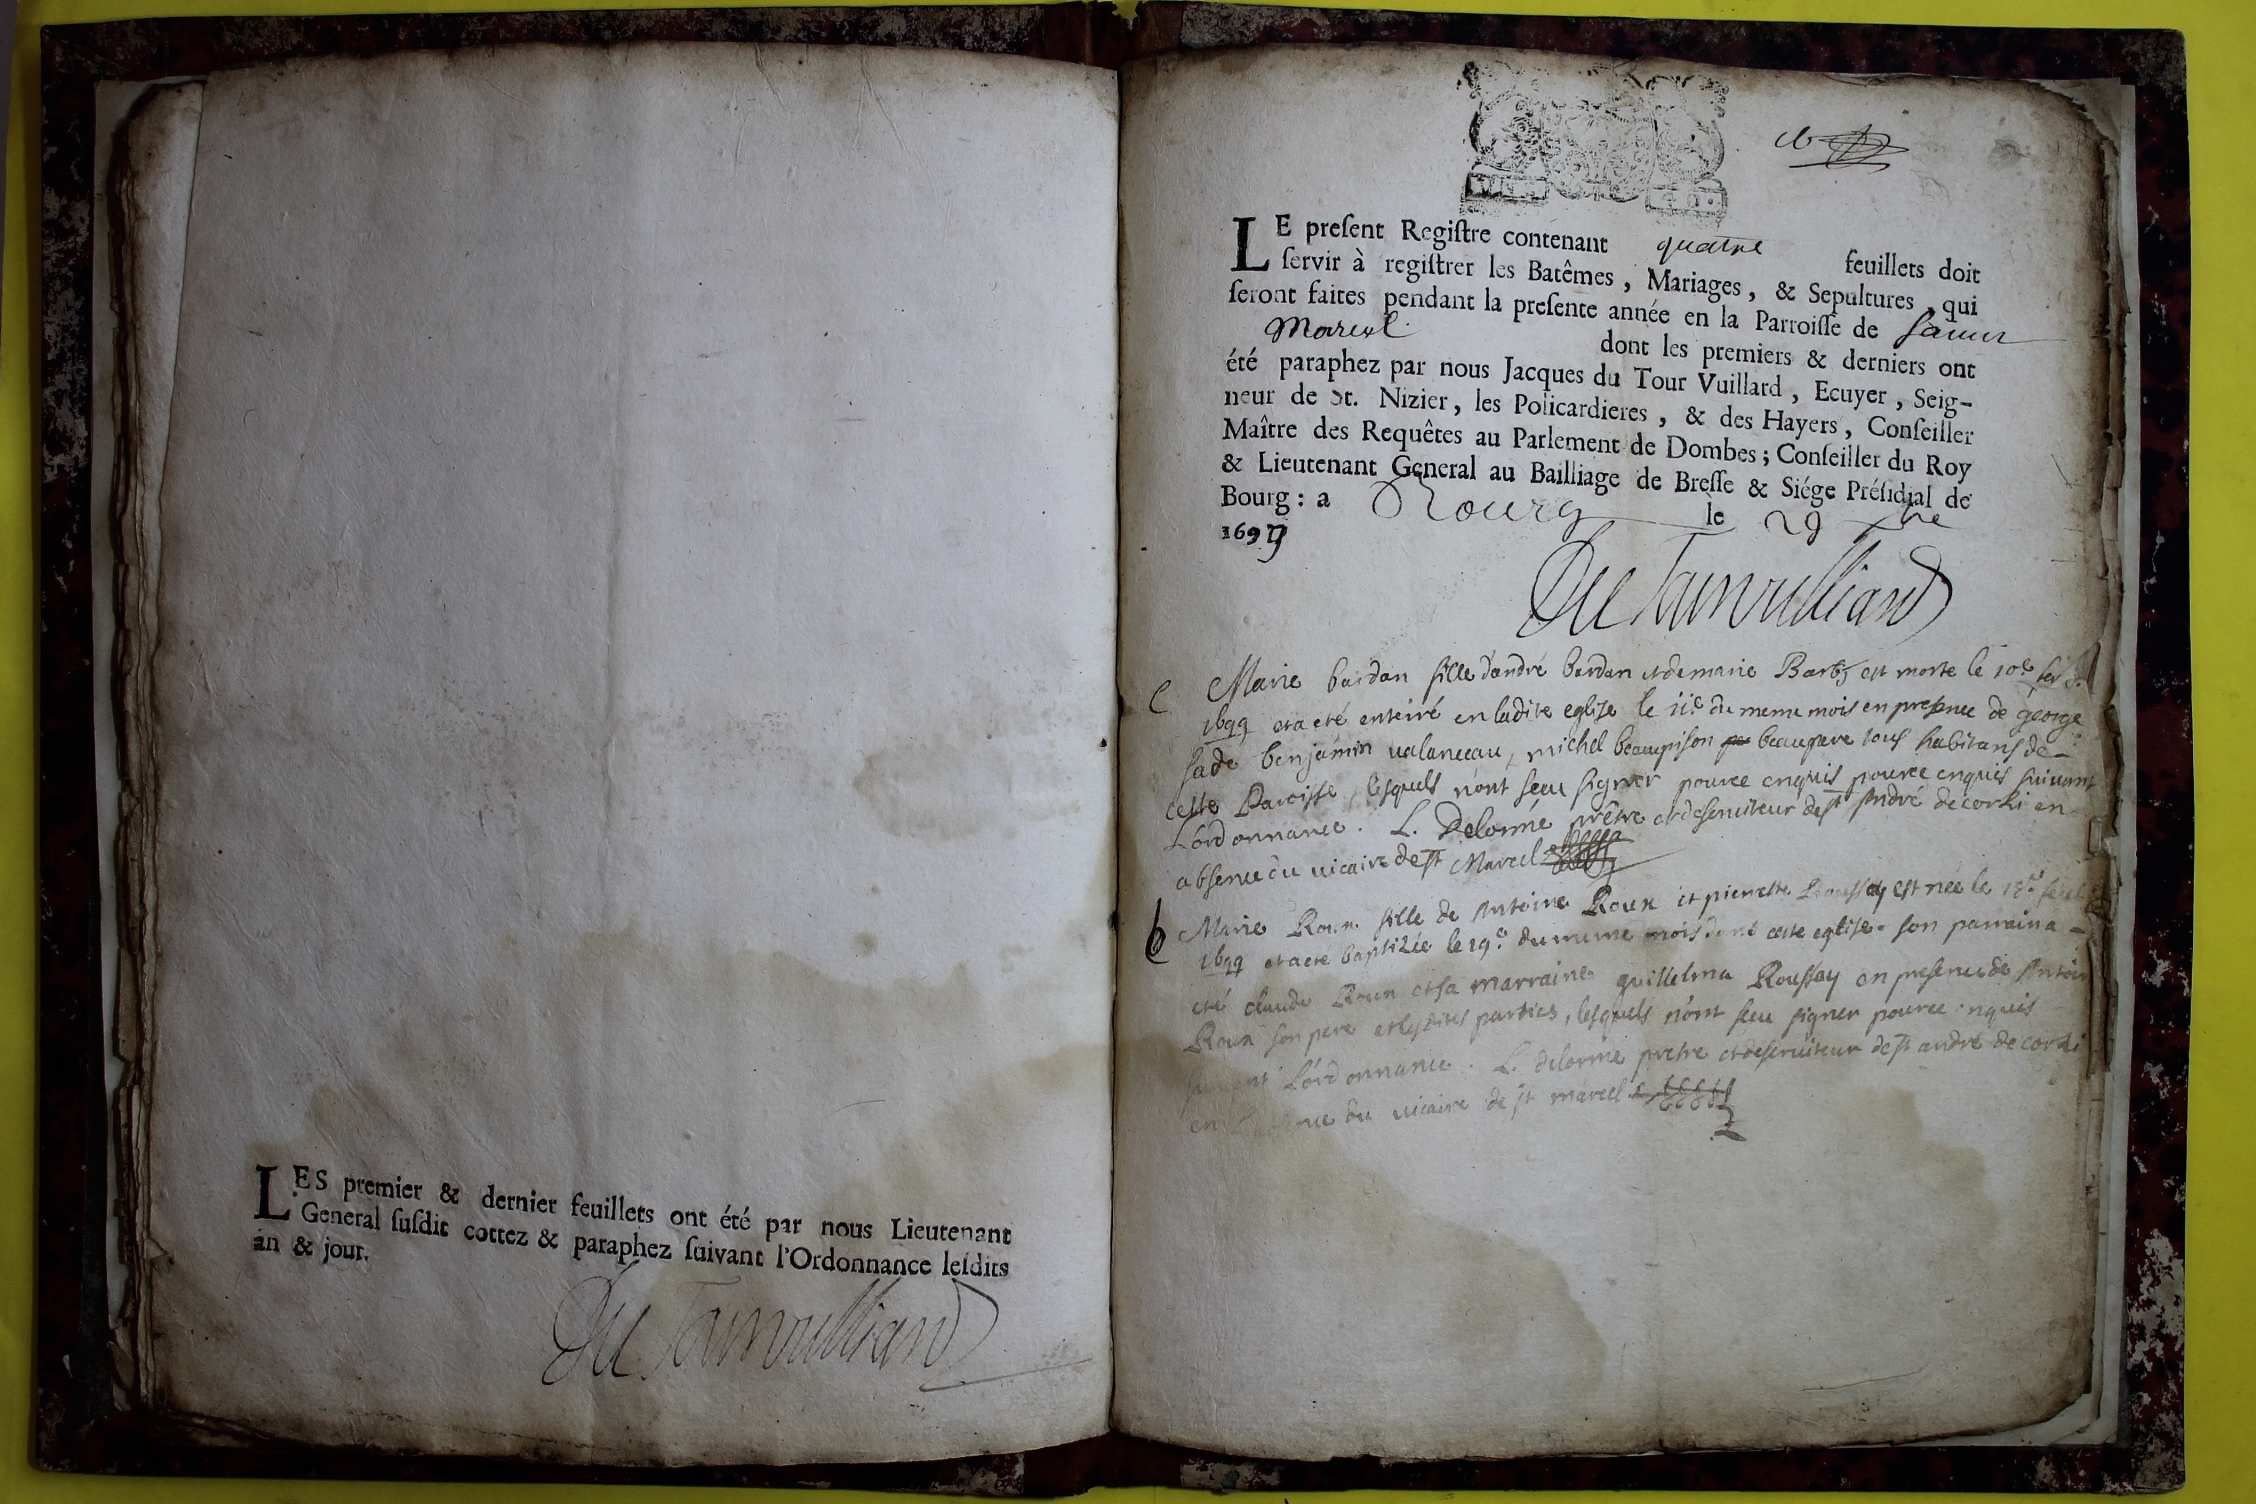 LES premier & dernier feuillets ont été par nous Lieutenant
General ſuſdit cottez & paraphez ſuivant l'Ordonnance leſdits
an & jour.
Du Tourvulliard
LE preſent Regiſtre contenant quatre feuillets doit
ſervir à regiſtrer les Batêmes, Mariages, & Sepultures, qui
ſeront faites pendant la preſente année en la Parroiſſe de
Marcel dont les premiers & derniers ont
été paraphez par nous Jacques du Tour Vuillard, Ecuyer, Seig-
neur de St. Nizier, les Policardieres, & des Hayers, Conſeiller
Maître des Requêtes au Parlement de Dombes; Conſeiller du Roy
& Lieutenant General au Bailliage de Breſſe & Siége Préſidial de
Bourg: a Bourg le 29
169
Du Tourvulliard
c Marie bardan fille d'andré bardan et de marie est morte le 10e
1699 et a eté enterré en ladite eglise le 11e du meme mois en presence de george
sade benjamin valanceau, michel beaupison beaupere tous habitans de
cette Paroisse lesquels n'ont sceu signer pource enquis pource enquis suivant
L'ordonnance. L. Delorme prêtre et deserviteur de st André de corsi en
absence du vicaire de st Marcel
b Marie Roux fille de Antoine Roux et pierrette Roussay est née le 18e
1699 et a eté baptizée le 19e du meme mois dans cette eglise. son parrain a
eté claude Roux et sa marraine guillelma Roussay en presence de Antoine
Roux son pere et lesdites parties, lesquels n'ont sceu signer pource enquis
suivant L'ordonnance. L. delorme pretre et deserviteur de st andré de corsi
en L'absence du vicaire de st marcel